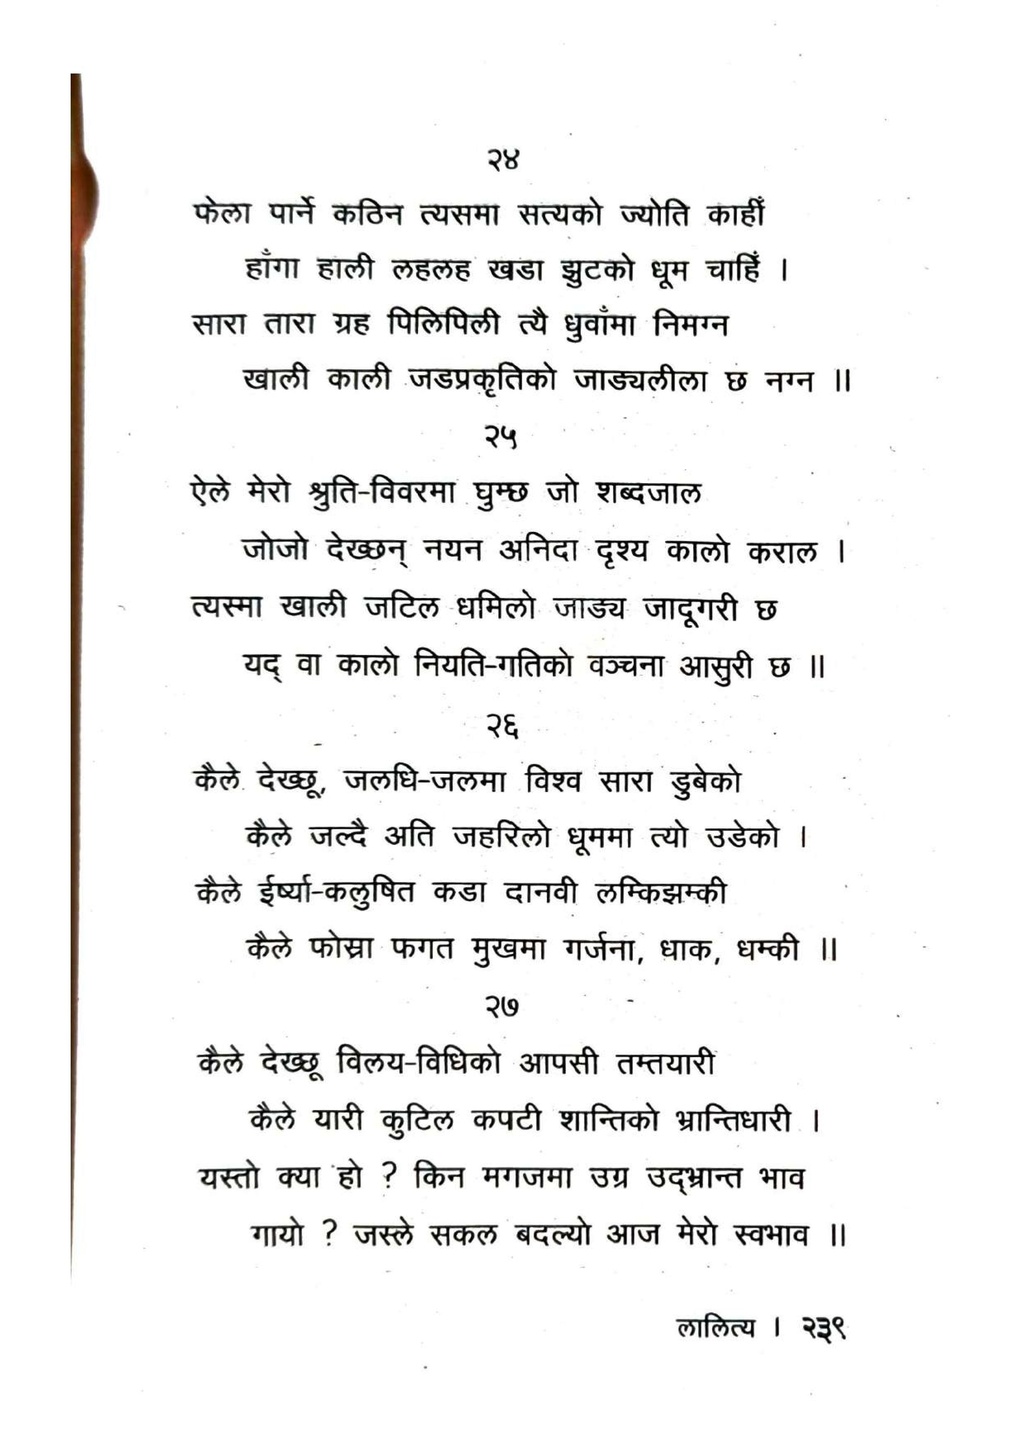 २४
फेला पार्ने कठिन त्यसमा सत्यको ज्योति काहीँ
हाँगा हाली लहलह खडा झुटको धूम चाहिँ ।
सारा तारा ग्रह पिलिपिली त्यै धुवाँमा निमग्न
खाली काली जडप्रकृतिको जाड्यलीला छ नग्न ॥
२५
ऐले मेरो श्रुति-विवरमा घुम्छ जो शब्दजाल
जोजो देख्छन् नयन अनिदा दृश्य कालो कराल ।
त्यस्मा खाली जटिल धमिलो जाड्य जादूगरी छ
यद् वा कालो नियति-गतिको वञ्चना आसुरी छ ॥
२६
कैले देख्छू, जलधि-जलमा विश्व सारा डुबेको
कैले जल्दै अति जहरिलो धूममा त्यो उडेको ।
कैले ईर्ष्या-कलुषित कडा दानवी लम्किझम्की
कैले फोस्रा फगत मुखमा गर्जना, धाक, धम्की ॥
२७
कैले देख्छू विलय-विधिको आपसी तम्तयारी
कैले यारी कुटिल कपटी शान्तिको भ्रान्तिधारी ।
यस्तो क्या हो ? किन मगजमा उग्र उद्भ्रान्त भाव
गायो ? जस्ले सकल बदल्यो आज मेरो स्वभाव ॥
लालित्य । २३९